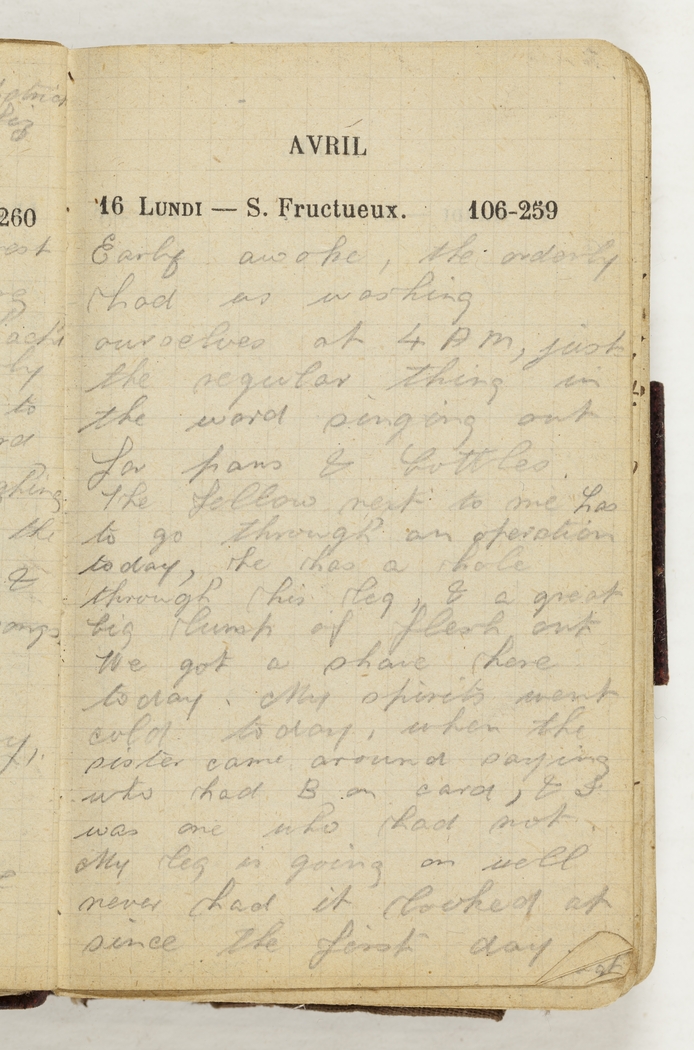 AVRIL
16 LUNDI — S. Fructueux. 106-259
Early awoke, the orderly
had us washing
ourselves at 4 AM, just
the regular thing in
the ward singing out
for pans & bottles.
The fellow next to me has
to go through an operation
today, he has a hole
through his leg, & a great
big lump of flesh out
We got a shave here
today. My spirits went
cold today, when the
sister came around saying
who had B on card, & I
was one who had not
My leg is going on well
never had it looked at
since the first day
260
the
&
to